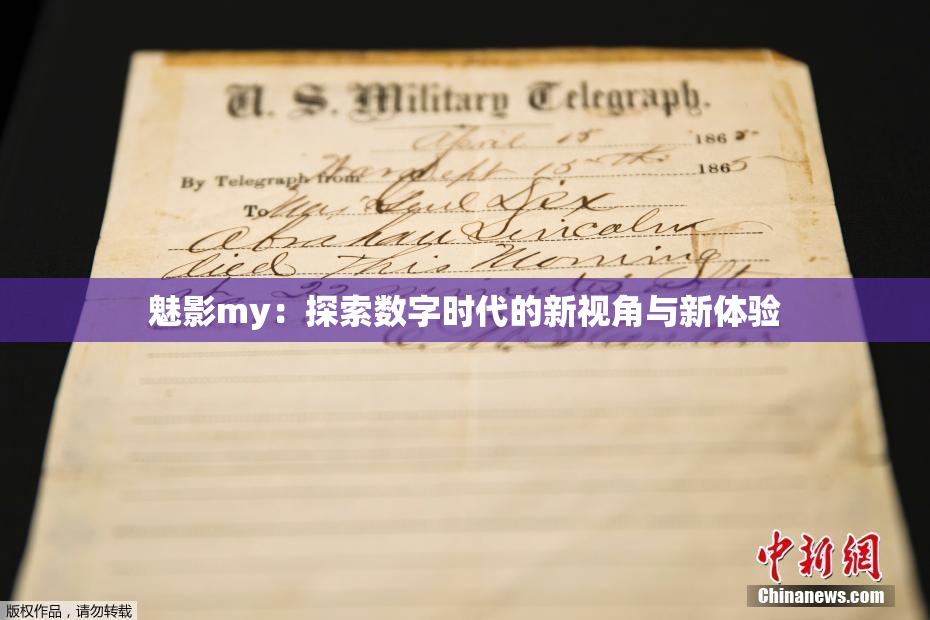 U. S. Military Telegraph.
April 15 1865
By Telegraph from War Dept 15th 1865
To Maj Genl Dix
Abraham Lincoln
died This Morning
at 22 minutes after
魅影my：探索数字时代的新视角与新体验
E. M. Stanton
中新网
Chinanews.com
版权作品，请勿转载